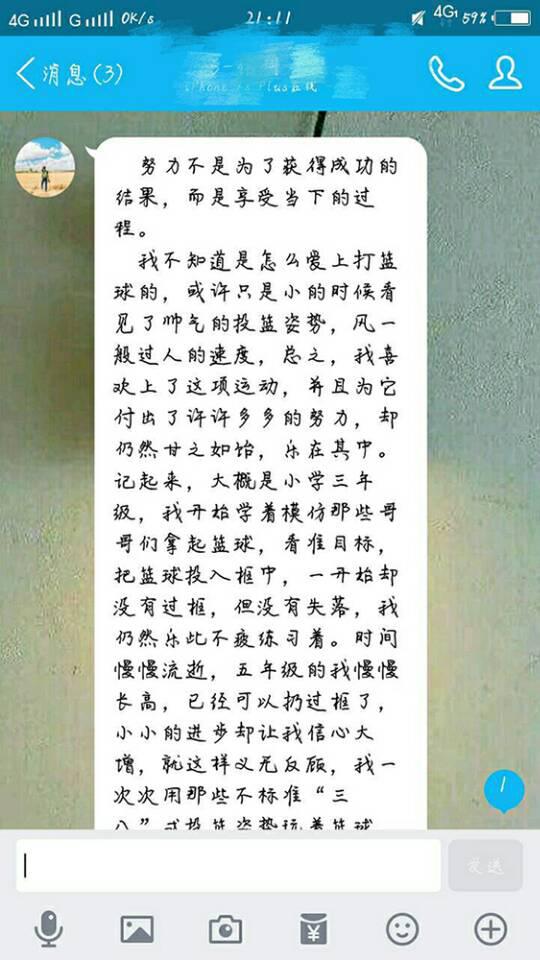 4G G 0K/s 21:11 4G1 59%
消息(3)
iPhone 7s Plus在线
努力不是为了获得成功的
结果，而是享受当下的过
程。
我不知道是怎么爱上打篮
球的，或许只是小的时候看
见了帅气的投篮姿势，风一
般过人的速度，总之，我喜
欢上了这项运动，并且为它
付出了许许多多的努力，却
仍然甘之如饴，乐在其中。
记起来，大概是小学三年
级，我开始学着模仿那些哥
哥们拿起篮球，看准目标，
把篮球投入框中，一开始却
没有过框，但没有失落，我
仍然乐此不疲练习着。时间
慢慢流逝，五年级的我慢慢
长高，已经可以扔过框了，
小小的进步却让我信心大
增，就这样义无反顾，我一
次次用那些不标准“三
八”式投篮姿势玩着篮球
1
发送